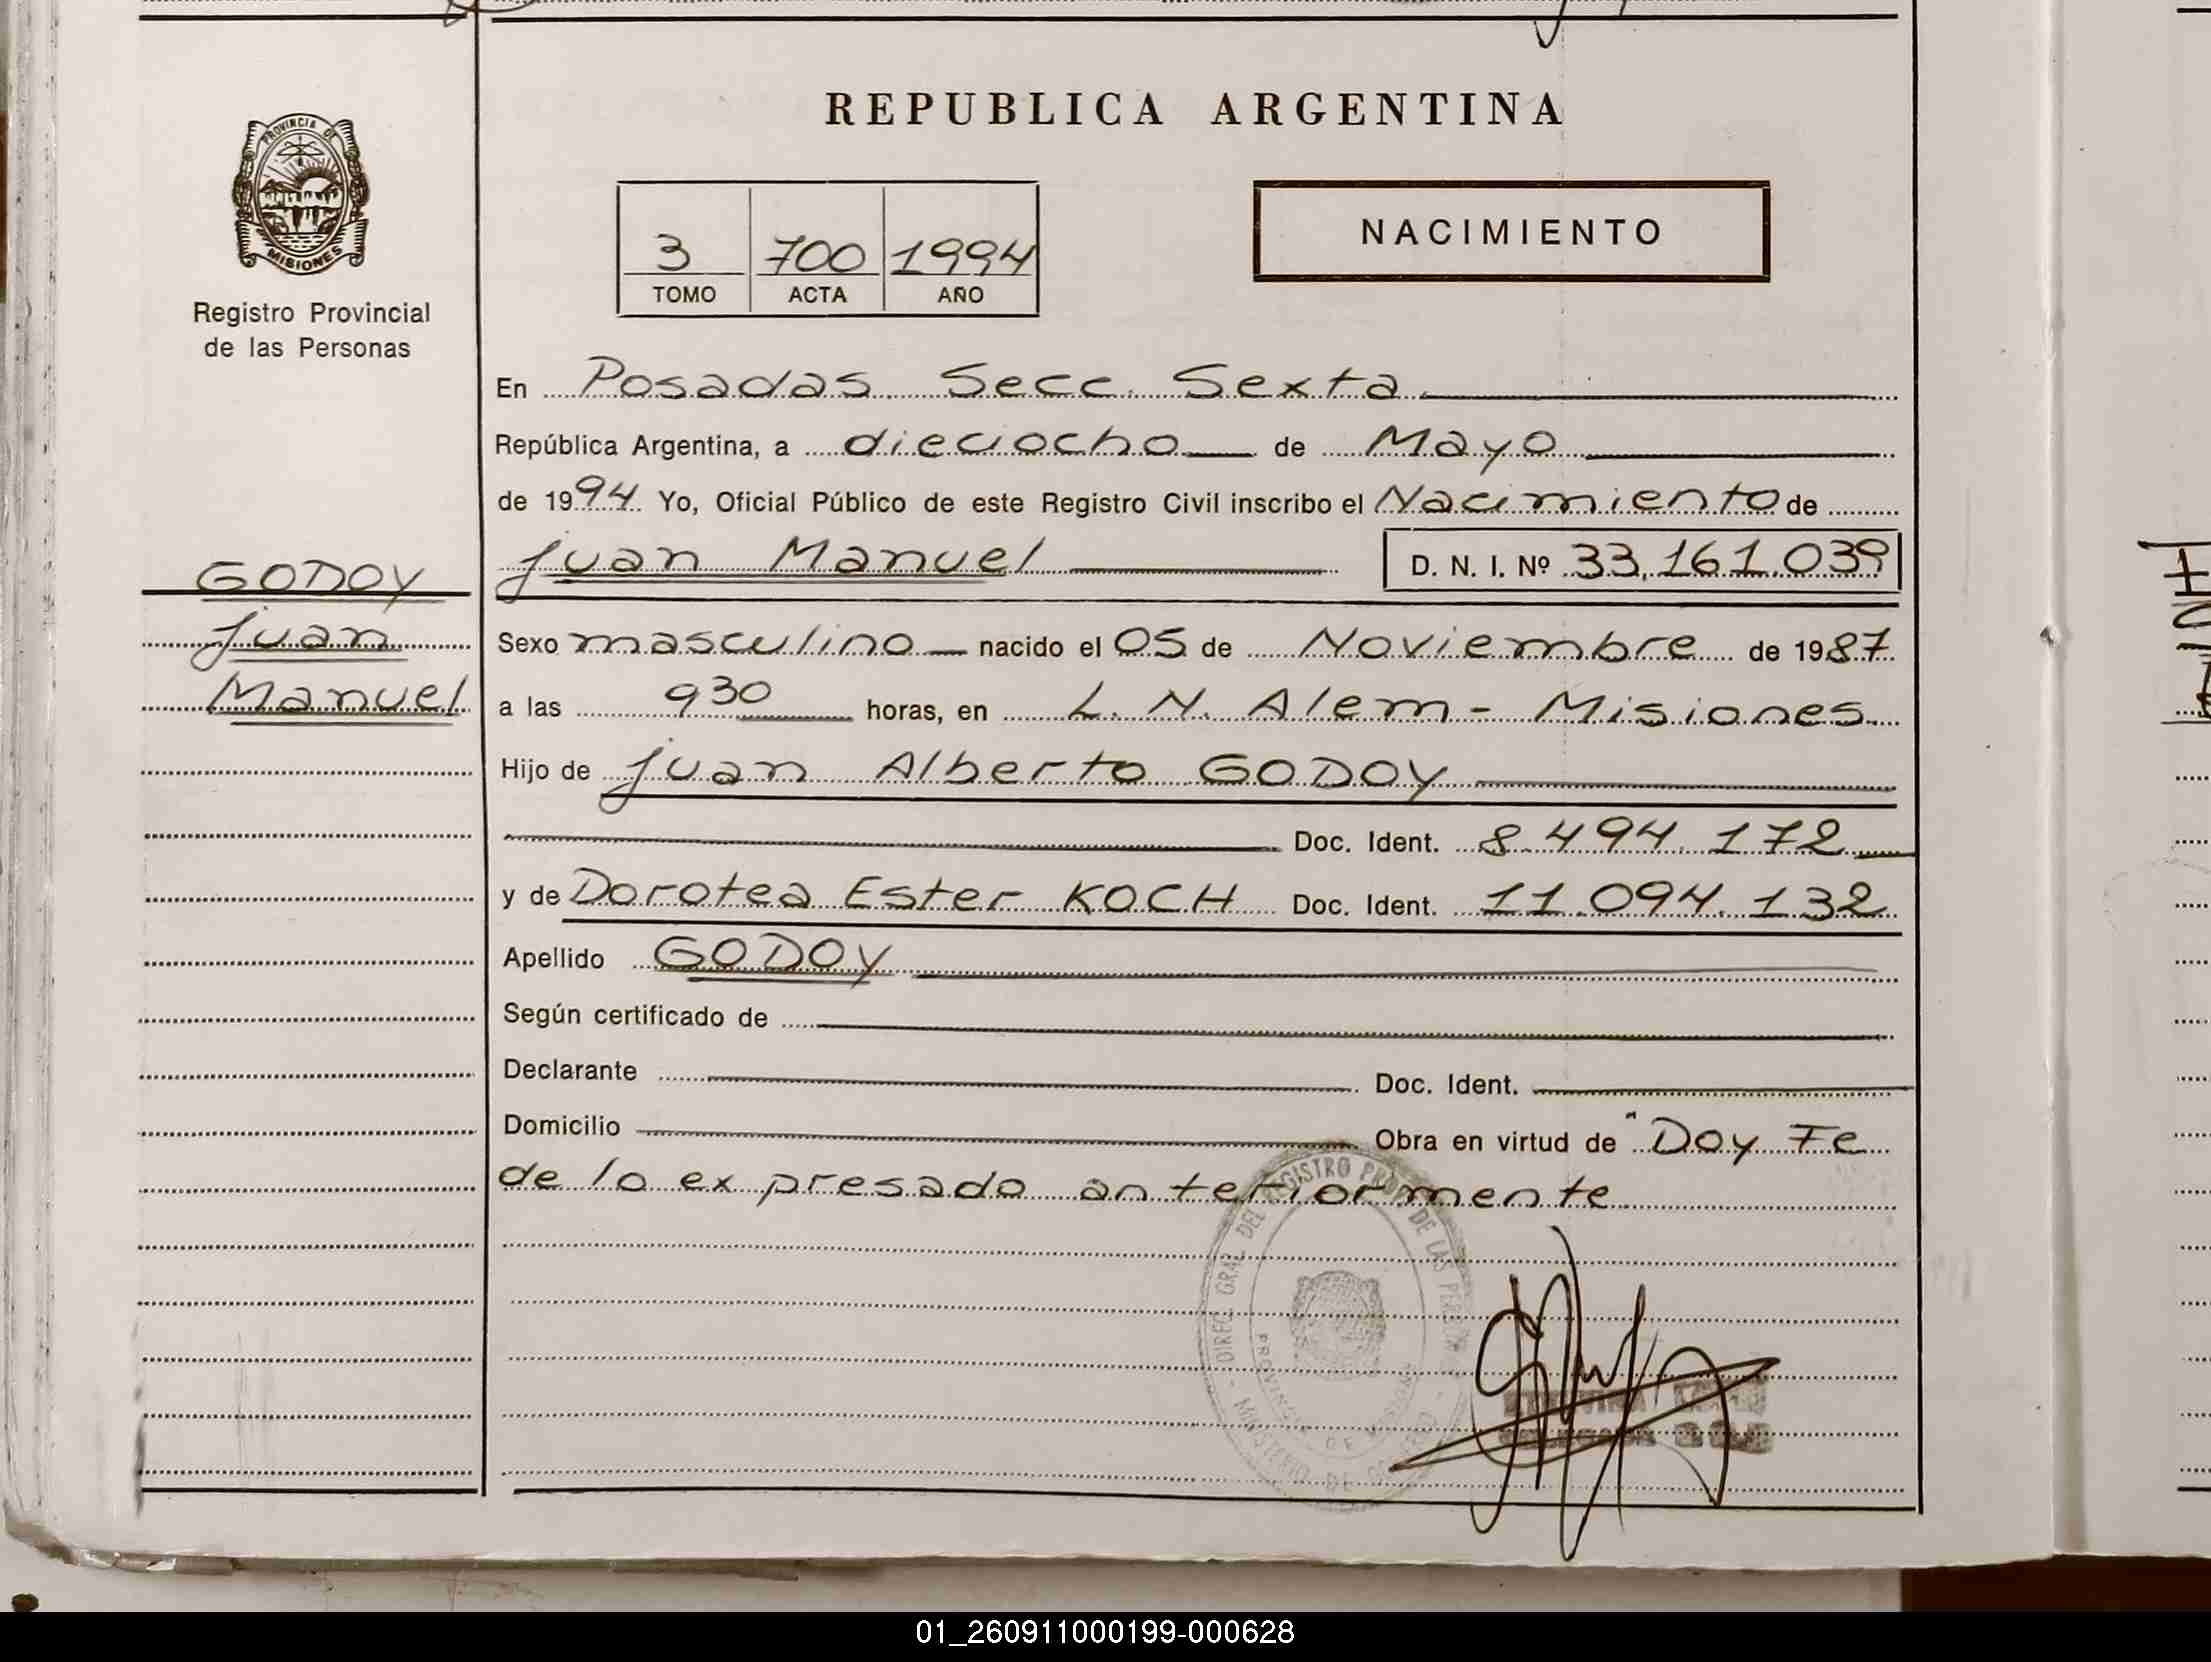 REPUBLICA ARGENTINA
PROVINCIA DE
MISIONES
Registro Provincial
de las Personas
3 700 1994
TOMO ACTA AÑO
NACIMIENTO
En Posadas Secc. Sexta
República Argentina, a dieciocho de Mayo
de 1994 Yo, Oficial Público de este Registro Civil inscribo el Nacimiento de
Juan Manuel D. N. I. Nº 33.161.039
GODOY
Juan
Manuel
Sexo masculino nacido el 05 de Noviembre de 1987
a las 930 horas, en L. N. Alem - Misiones
Hijo de Juan Alberto GODOY
Doc. Ident. 8.494.172
y de Dorotea Ester KOCH Doc. Ident. 11.094.132
Apellido GODOY
Según certificado de
Declarante Doc. Ident.
Domicilio Obra en virtud de "Doy Fe
de lo expresado anteriormente
DIREC. GRAL. DEL REGISTRO PROV. DE LAS
MINISTERIO DE
01_260911000199-000628